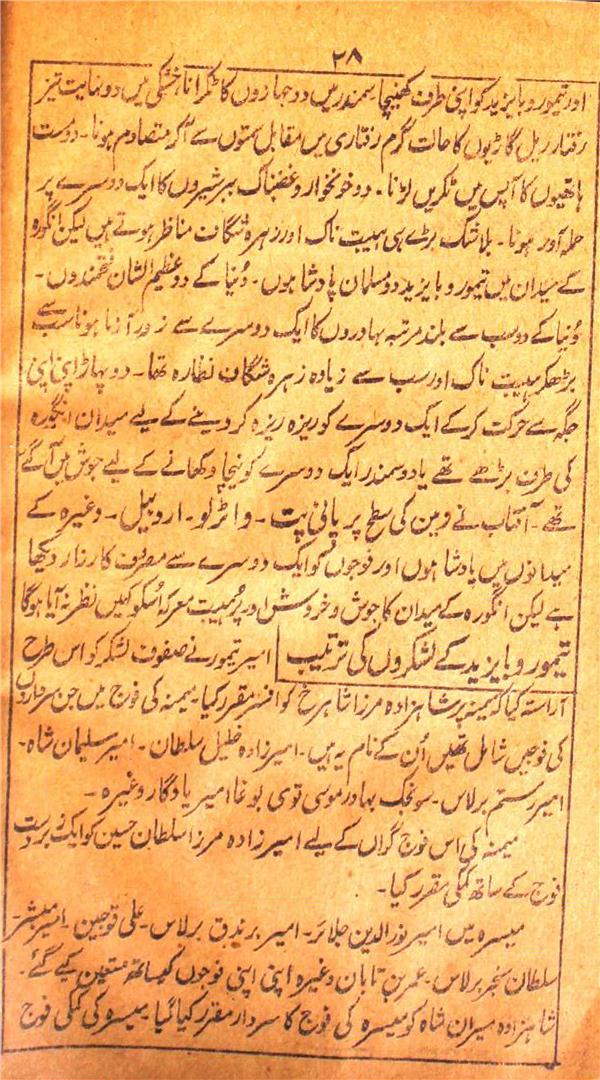 ۲۸
اور تیمور و بایزید کو اپنی طرف کھینچا سمندر میں دو جہازوں کا ٹکرانا خشکی میں دو نہایت تیز
رفتار ریل گاڑیوں کا حالت گرم رفتاری میں مقابل سمتوں سے آکر متصادم ہونا۔ دو مست
ہاتھیوں کا آپس میں ٹکریں لڑنا۔ دو خونخوار و غضبناک ببر شیروں کا ایک دوسرے پر
حملہ آور ہونا۔ بلاشک بڑے ہی ہیبت ناک اور زہرہ شگاف مناظر ہوتے ہیں لیکن انگورہ
کے میدان میں تیمور و بایزید دو مسلمان پادشاہوں۔ دُنیا کے دو عظیم الشان فتحمندوں۔
دُنیا کے دو سب سے بلند مرتبہ بہادروں کا ایک دوسرے سے زور آزما ہونا سب سے
بڑھکر ہیبت ناک اور سب سے زیادہ زہرہ شگاف نظارہ تھا۔ دو پہاڑ اپنی اپنی
جگہ سے حرکت کرکے ایک دوسرے کو ریزہ ریزہ کر دینے کے لیے میدان انگورہ
کی طرف بڑھے تھے یا دو سمندر ایک دوسرے کو نیچا دکھانے کے لیے جوش میں آ گئے
تھے۔ آفتاب نے زمین کی سطح پر پانی پت۔ واٹرلو۔ اردبیل۔ وغیرہ کے
میدانوں میں پادشاہوں اور فوجوں کو ایک دوسرے سے مصروف کارزار دیکھا
ہے لیکن انگورہ کے میدان کا جوش و خروش اور پُر ہیبت معرکہ اُسکو کہیں نظر نہ آیا ہوگا
تیمور و بایزید کے لشکروں کی ترتیب امیر تیمور نے صفوف لشکر کو اس طرح
آراستہ کیا کہ میمنہ پر شاہزادہ مرزا شاہرخ کو افسر مقرر کیا۔ میمنہ کی فوج میں جن سرداروں
کی فوجیں شامل تھیں اُن کے نام یہ ہیں۔ امیر زادہ خلیل سلطان۔ امیر سلیمان شاہ۔
امیر رستم برلاس۔ سونجک بہادر موسی توی بوغا امیر یادگار وغیرہ۔
میمنہ کی اس فوج گراں کے لیے امیر زادہ مرزا سلطان حسین کو ایک زبردست
فوج کے ساتھ کمکی مقرر کیا۔
میسرہ میں امیر نور الدین جلائر۔ امیر برندق برلاس۔ علی قوجین۔ امیر مبشر۔
سلطان سنجر برلاس۔ عمر بن تابان وغیرہ اپنی اپنی فوجوں کیساتھ متعین کیے گئے۔
شاہزادہ میران شاہ کو میسرہ کی فوج کا سردار مقرر کیا گیا۔ میسرہ کی کمکی فوج